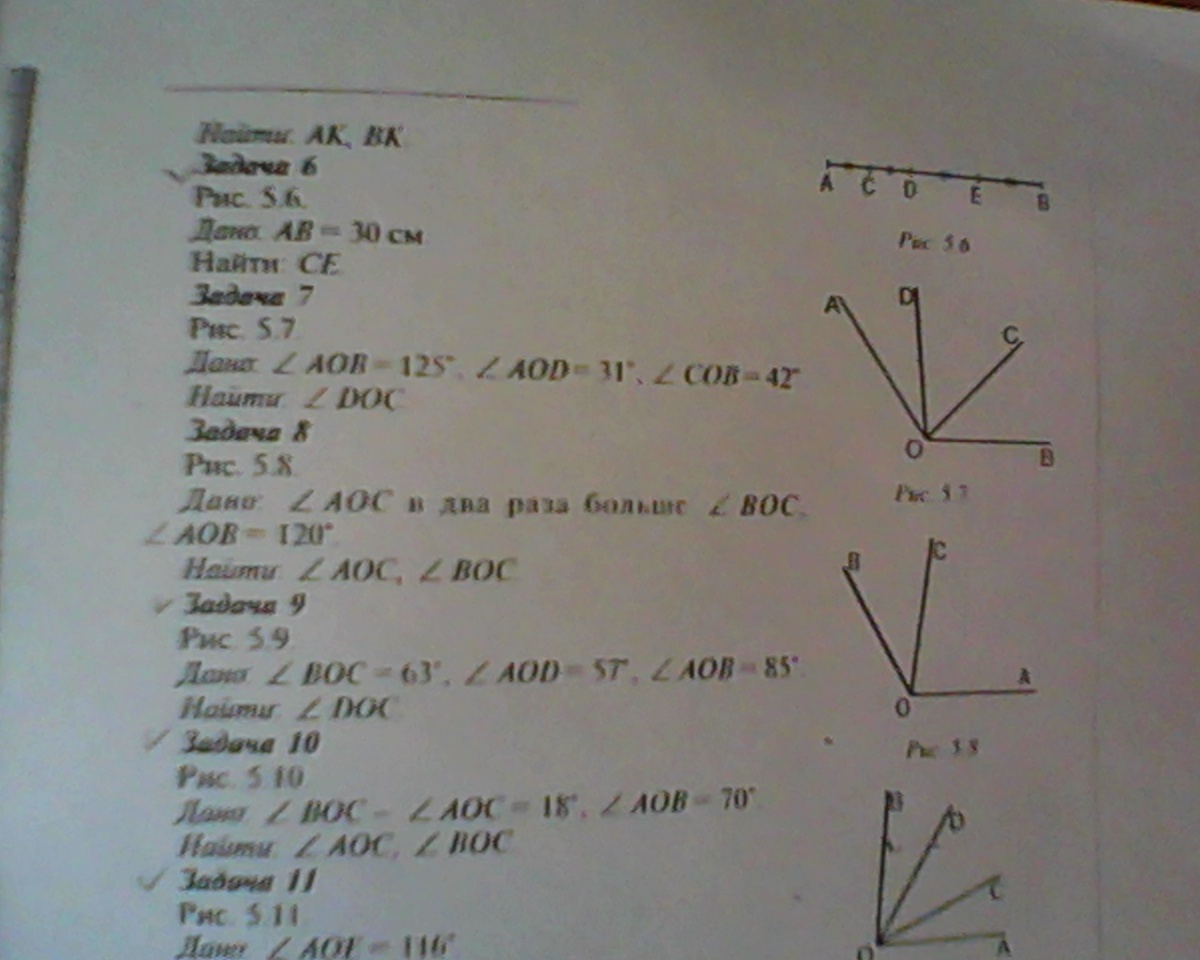 Найти: AK, BK
Задача 6
Рис. 5.6.
Дано: AB = 30 см
Найти: CE
Задача 7
Рис. 5.7
Дано: ∠ AOB = 125°, ∠ AOD = 31°, ∠ COB = 42°
Найти: ∠ DOC
Задача 8
Рис. 5.8.
Дано: ∠ AOC в два раза больше ∠ BOC,
∠ AOB = 120°
Найти: ∠ AOC, ∠ BOC
Задача 9
Рис. 5.9
Дано: ∠ BOC = 63°, ∠ AOD = 57°, ∠ AOB = 85°
Найти: ∠ DOC
Задача 10
Рис. 5.10
Дано: ∠ BOC – ∠ AOC = 18°, ∠ AOB = 70°
Найти: ∠ AOC, ∠ BOC
Задача 11
Рис. 5.11
Дано: ∠ AOE = 116°
A C D E B
Рис. 5.6
A D C
O B
Рис. 5.7
B C
A
O
Рис. 5.8
B
D
C
O A